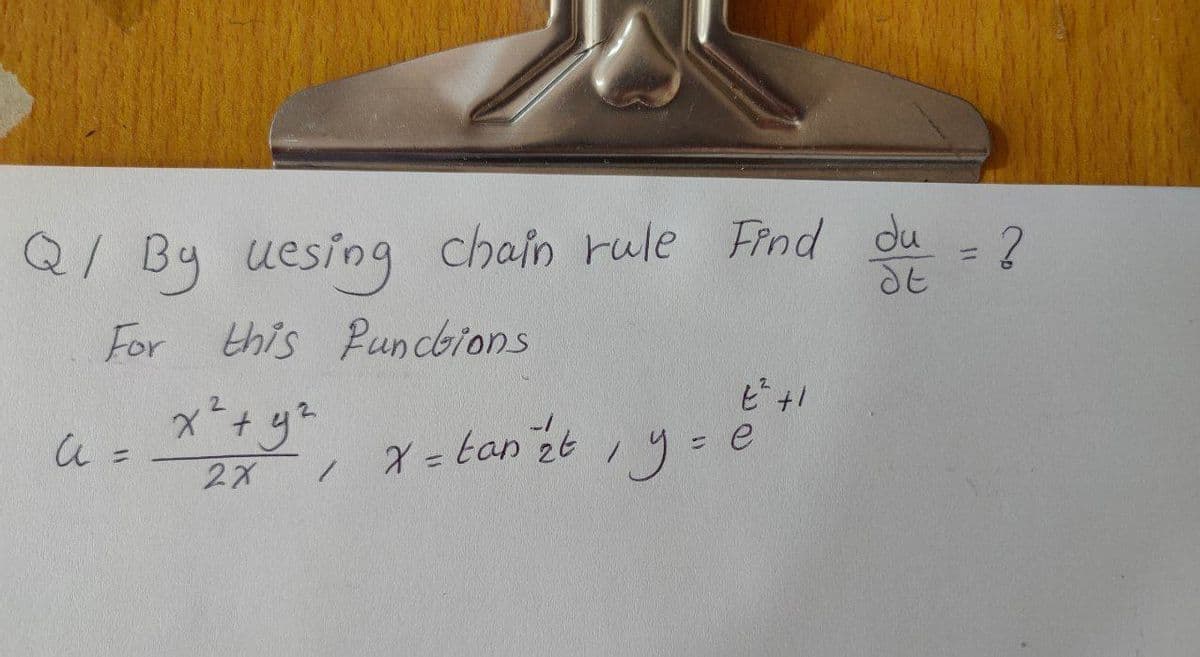 Q/ By uesing chain rule Find du/∂t = ?
For this Functions
u = x²+y²/2x , x = tan⁻¹2t , y = e^t²+1